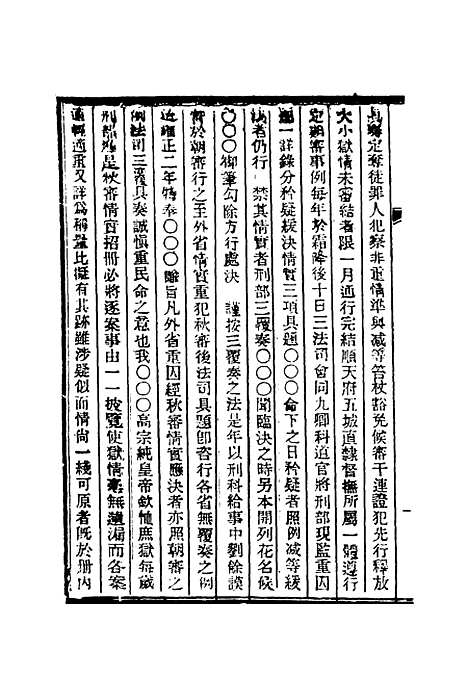 具題定奪徒罪人犯察非重情準與減等笞杖豁免候審干連證犯先行釋放
大小獄情未審結者限一月通行完結順天府五城直隸督撫所屬一體遵行
定朝審事例每年於霜降後十日三法司會同九卿科道官將刑部現監重囚
逐一詳錄分矜疑緩決情實三項具題〇〇〇命下之日矜疑者照例減等緩
決者仍行 禁其情實者刑部三覆奏〇〇〇聞臨決之時另本開列花名候
〇〇〇御筆勾除方行處決 謹按三覆奏之法是年以刑科給事中劉餘謨
於朝審行之至外省情實重犯秋審後法司具題卽咨行各省無覆奏之例
迨雍正二年特奉〇〇〇諭旨凡外省重囚經秋審情實應決者亦照朝審之
例法司三覆具奏誠慎重民命之意也我〇〇〇高宗純皇帝欽恤庶獄每歲
刑部進呈秋審情實招冊必將逐案事由一一披覽使獄情毫無遺漏而各案
適輕適重又詳爲稱量比擬有其跡雖涉疑似而情尚一綫可原者旣於册內